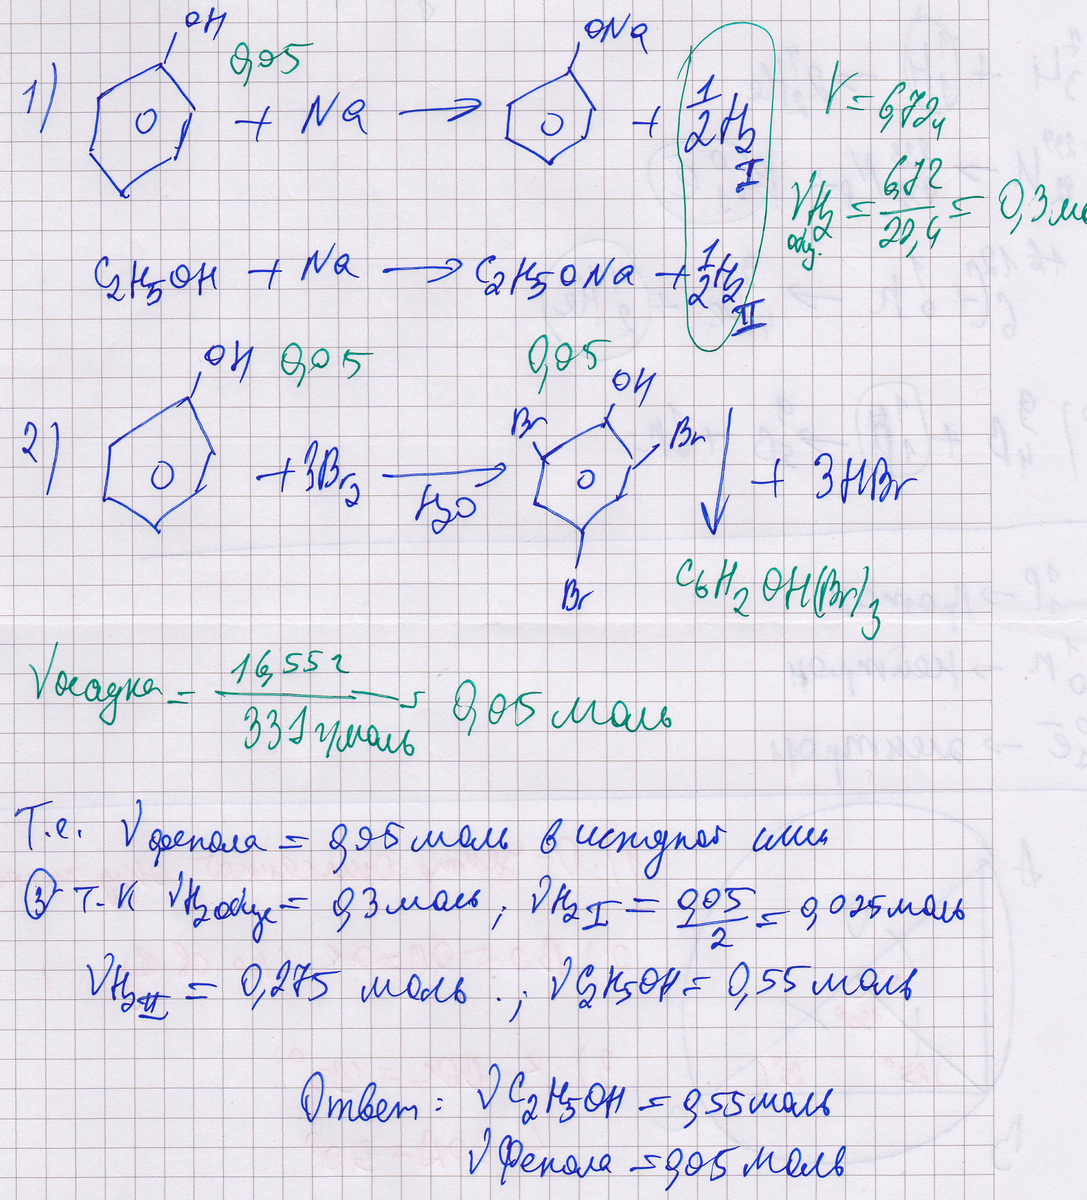 1) OH 0,05 + Na → ONa + 1/2 H2 I V = 6,72л
νH2 общ. = 6,72/22,4 = 0,3 мо
C2H5OH + Na → C2H5ONa + 1/2 H2 II
2) OH 0,05 + 3Br2 →H2O 0,05 OH Br Br Br ↓ + 3HBr
C6H2OH(Br)3
νосадка = 16,55 г / 331 г/моль = 0,05 моль
Т.е. νфенола = 0,05 моль в исходной смеси
③ т-к νH2 общее = 0,3 моль; νH2 I = 0,05/2 = 0,025 моль
νH2 II = 0,275 моль.; νC2H5OH = 0,55 моль
Ответ: νC2H5OH = 0,55 моль
νфенола = 0,05 моль